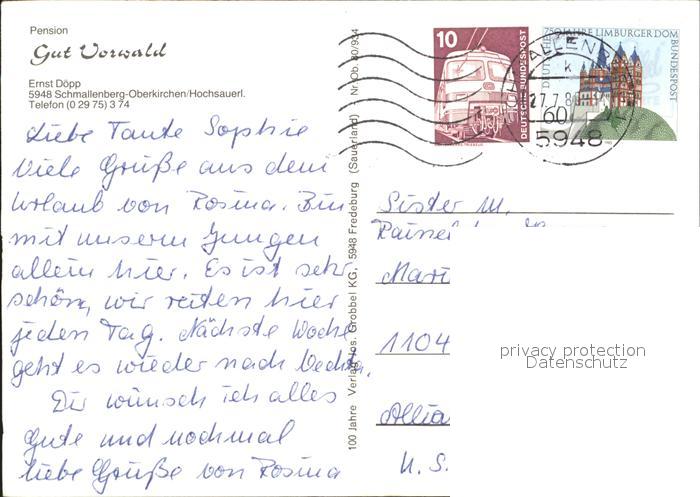 Pension
Gut Vorwald
Ernst Döpp
5948 Schmallenberg-Oberkirchen/Hochsauerl.
Telefon (0 29 75) 3 74
Liebe Tante Sophie
Viele Grüße aus dem
Urlaub von Rosina. Bin
mit unserm Jungen
allein hier. Es ist sehr
schön, wir reiten hier
jeden Tag. Nächste Woche
geht es wieder nach Vechta.
Dir wünsch ich alles
Gute und nochmal
liebe Grüße von Rosina
100 Jahre Verlag Jos. Grobbel KG, 5948 Fredeburg (Sauerland) Nr. Ob. 80/934
10
DEUTSCHE BUNDESPOST
750 JAHRE LIMBURGER DOM
DEUTSCHE BUNDESPOST
60
5948
Sister M.
Mari
1104
Allia
U. S.
privacy protection
Datenschutz